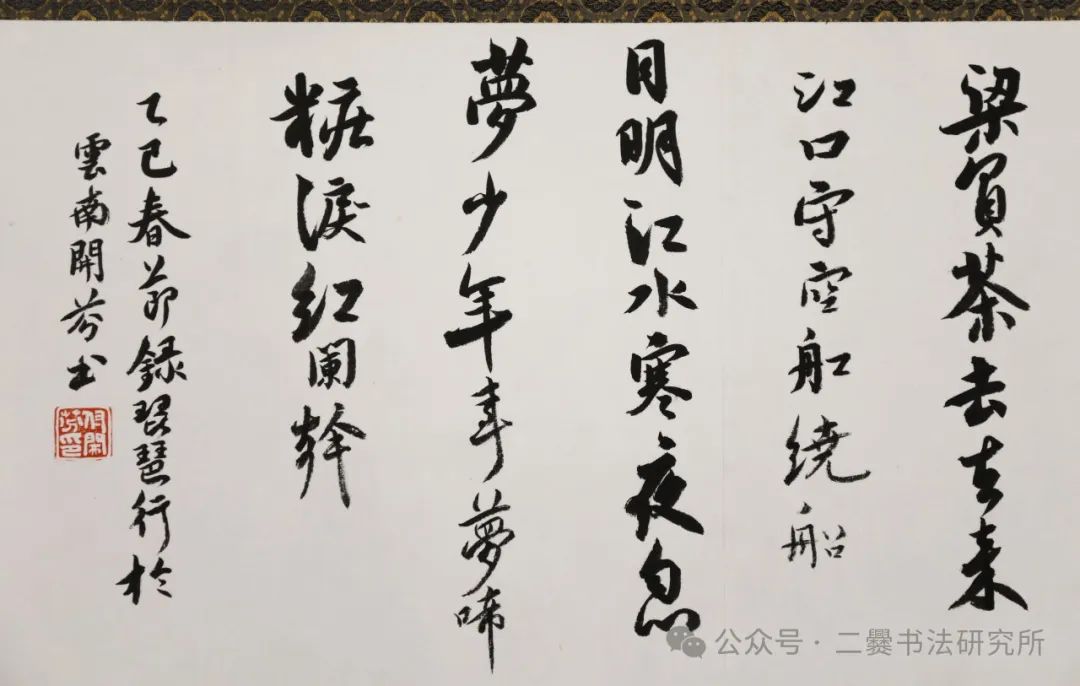 梁買茶去去来
江口守空船繞船
月明江水寒夜忽
夢少年事夢啼
粧淚紅闌幹
乙巳春節録琵琶行於
雲南開芬书
公众号 · 二爨书法研究所